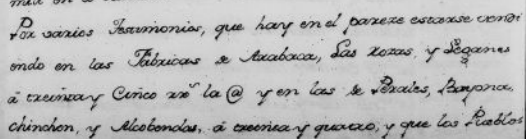 Por varios Testimonios, que hay en el pareze estarse vendi
endo en las Fábricas de Arabaca, Las Rozas, y Leganes
á treinta y Cinco rrˢ la @ y en las de Perales, Bayona,
chinchon, y Alcobendas, á treinta y quatro, y que los Pueblos